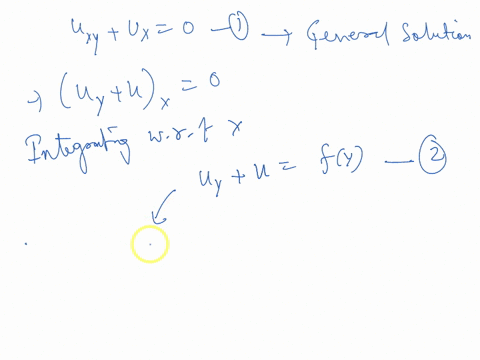 u_xy + u_x = 0 — ① → General Solution
→ (u_y + u)_x = 0
Integrating w.r.t x
u_y + u = f(y) — ②